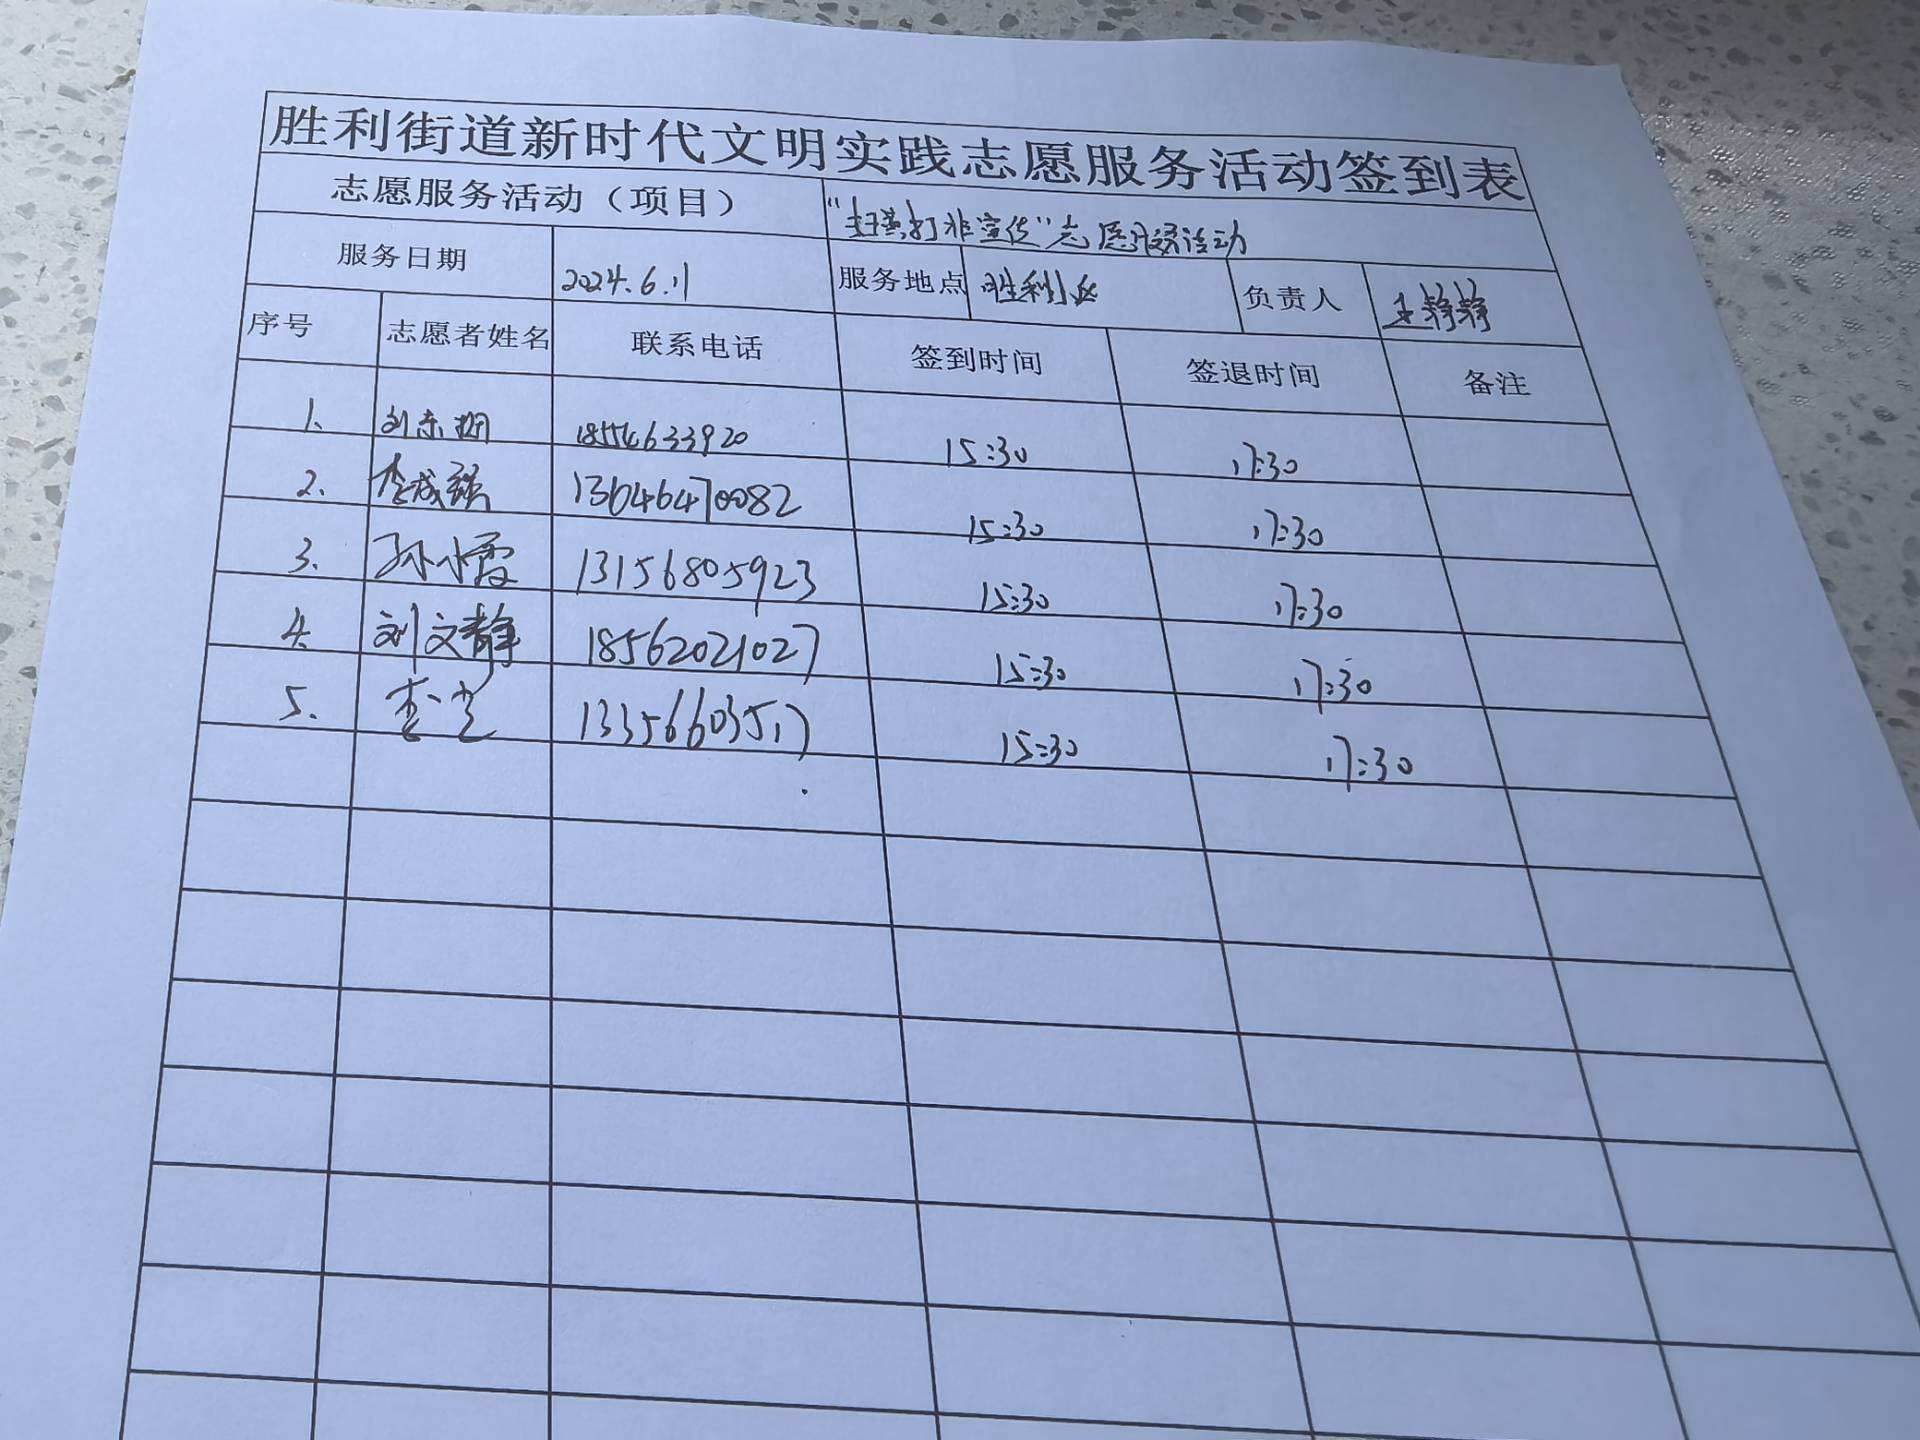 胜利街道新时代文明实践志愿服务活动签到表
志愿服务活动（项目） “扫黄打非宣传”志愿服务活动
服务日期 2024.6.11 服务地点 胜利社区 负责人 王静静
序号 志愿者姓名 联系电话 签到时间 签退时间 备注
1. 刘东 18554633920 15:30 17:30
2. 李成强 13646470082 15:30 17:30
3. 孙小霞 13156805923 15:30 17:30
4. 刘文静 18562021027 15:30 17:30
5. 李 13356603517 15:30 17:30